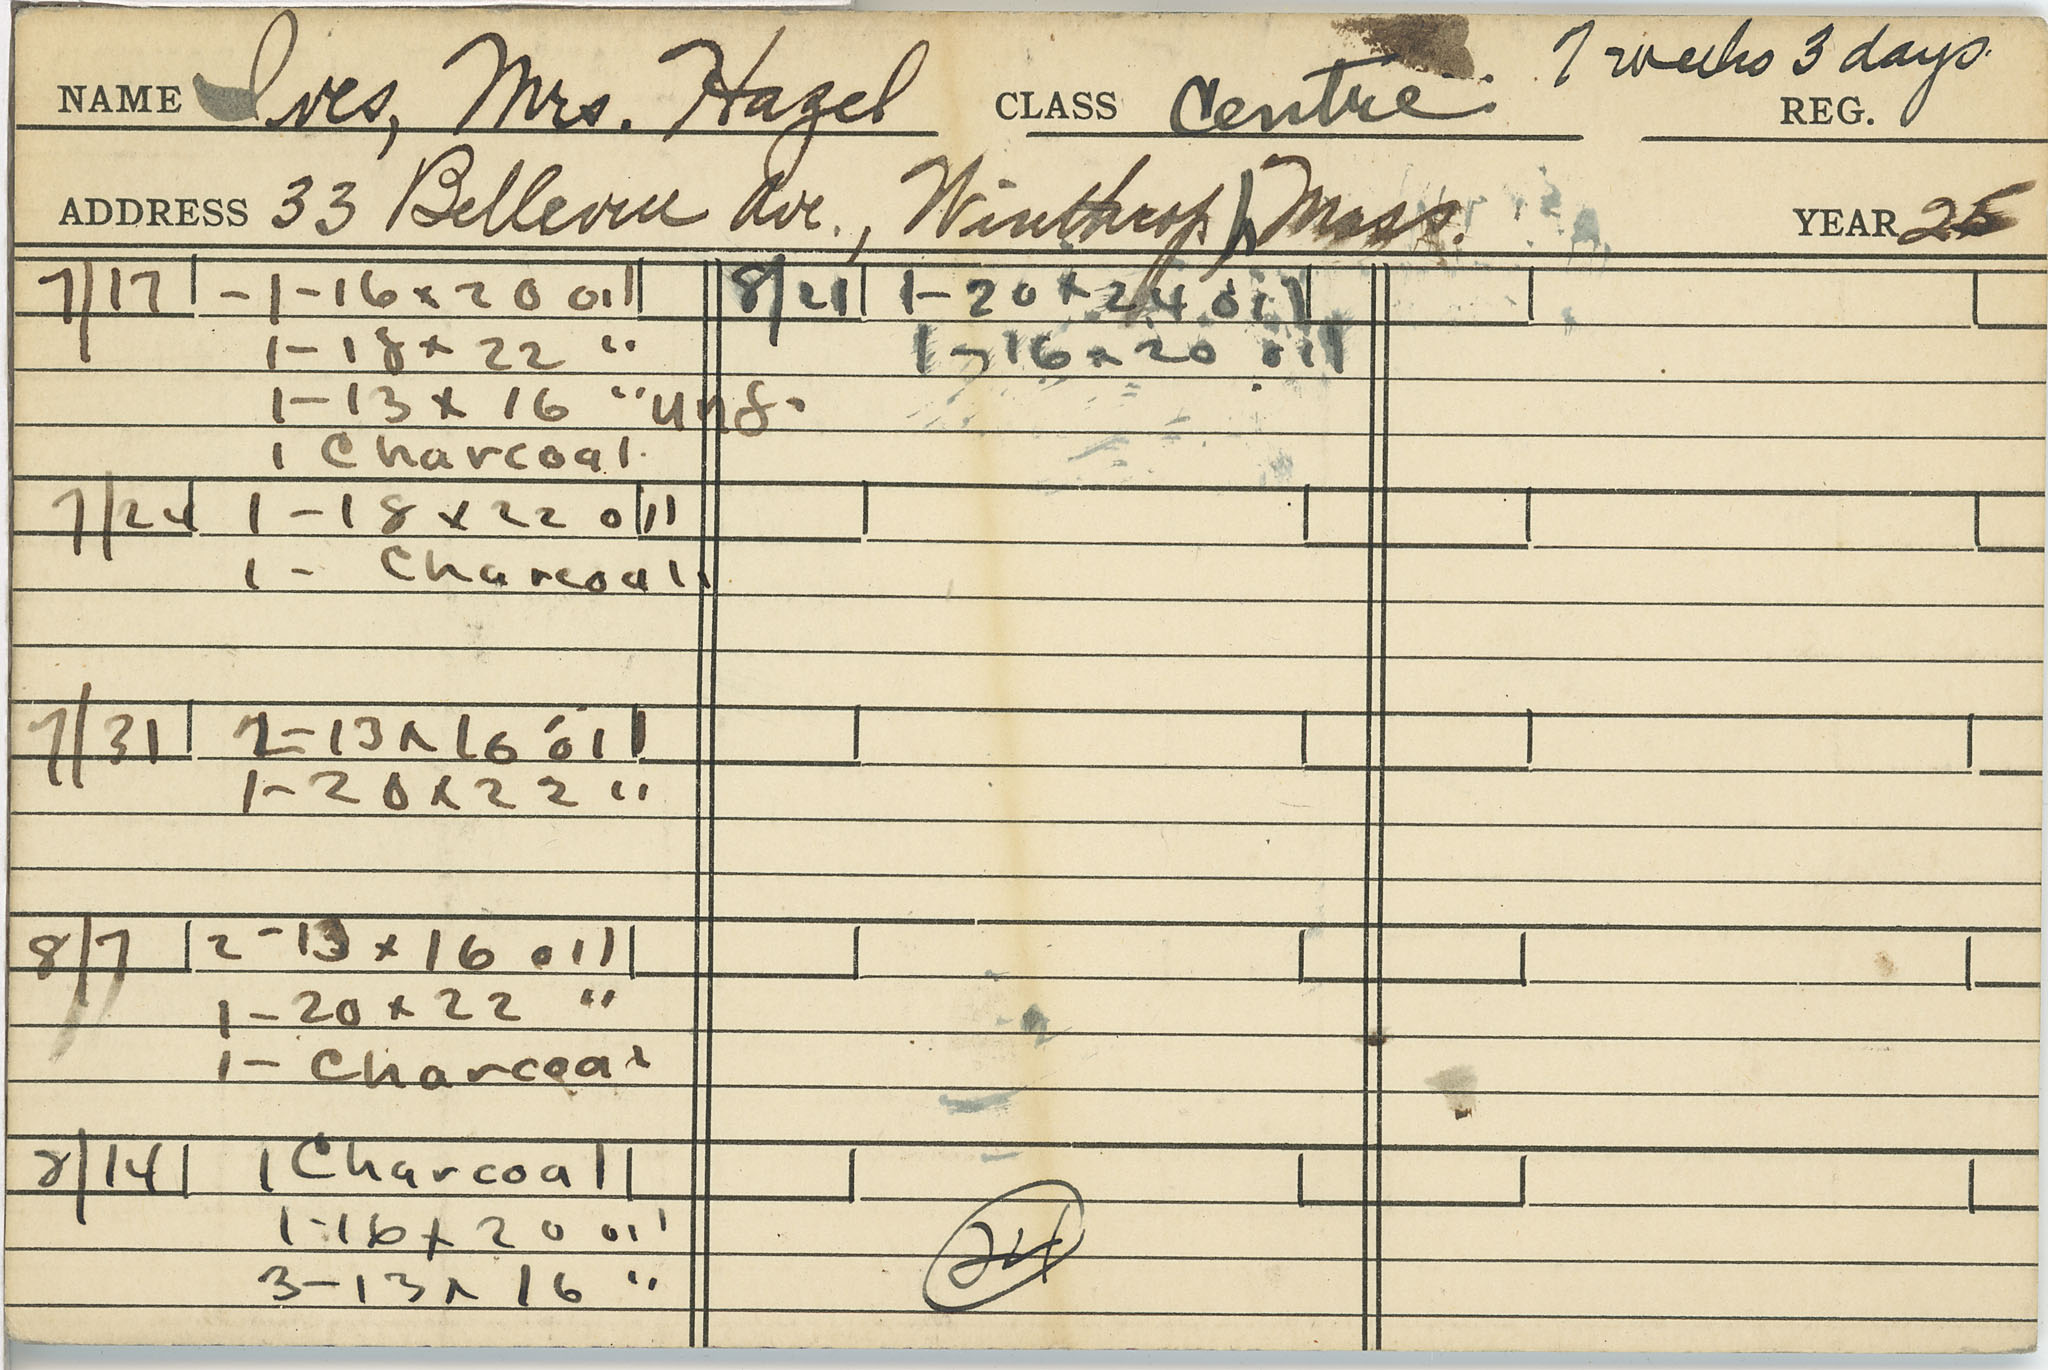 NAME Ives, Mrs. Hazel CLASS Centre. 7 weeks 3 days. REG.
ADDRESS 33 Bellevue Ave., Winthrop, Mass. YEAR 25
7/17 -1-16x20 oil
1-18x22 "
1-13x16 " unf.
1 Charcoal
7/24 1-18x22 oil
1- Charcoal
7/31 2-13x16 oil
1-20x22 "
8/7 2-13x16 oil
1-20x22 "
1- Charcoal
8/14 1 Charcoal
1-16x20 oil
3-13x16 "
8/21 1-20x24 oil
1-16x20 oil
24